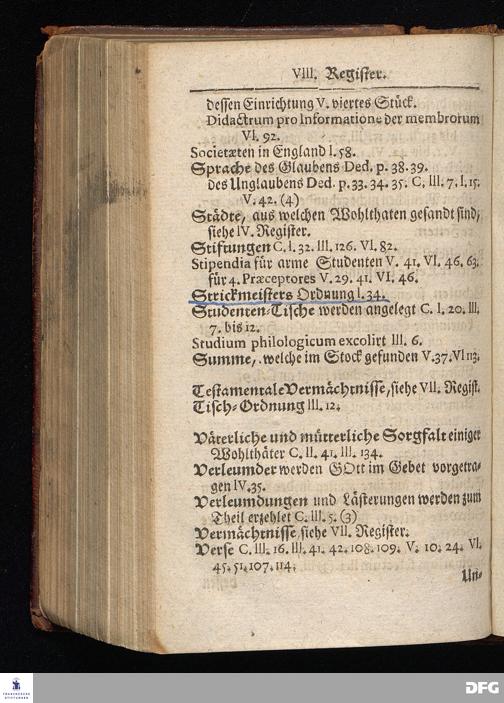 VIII. Register.
dessen Einrichtung V. viertes Stück.
Didactrum pro Informatione der membrorum
VI. 92.
Societæten in England I. 58.
Sprache des Glaubens Ded. p. 38. 39.
des Unglaubens Ded. p. 33. 34. 35. C. III. 7. I. 15.
V. 42. (4)
Städte, aus welchen Wohlthaten gesandt sind,
siehe IV. Register.
Stiftungen C. I. 32. III. 126. VI. 82.
Stipendia für arme Studenten V. 41. VI. 46. 63.
für 4. Præceptores V. 29. 41. VI. 46.
Strickmeisters Ordnung I. 34.
Studenten-Tische werden angelegt C. I. 20. III.
7. bis 12.
Studium philologicum excolirt III. 6.
Summe, welche im Stock gefunden V. 37. VI 113.
Testamentale Vermächtnisse, siehe VII. Regist.
Tisch-Ordnung III. 12.
Väterliche und mütterliche Sorgfalt einiger
Wohlthäter C. II. 41. III. 134.
Verleumder werden GOtt im Gebet vorgetra-
gen IV. 35.
Verleumdungen und Lästerungen werden zum
Theil erzehlet C. III. 5. (3)
Vermächtnisse, siehe VII. Register.
Verse C. III. 16. III. 41. 42. 108. 109. V. 10. 24. VI.
45. 51. 107. 114.
Un-
FRANCKESCHE
STIFTUNGEN
DFG